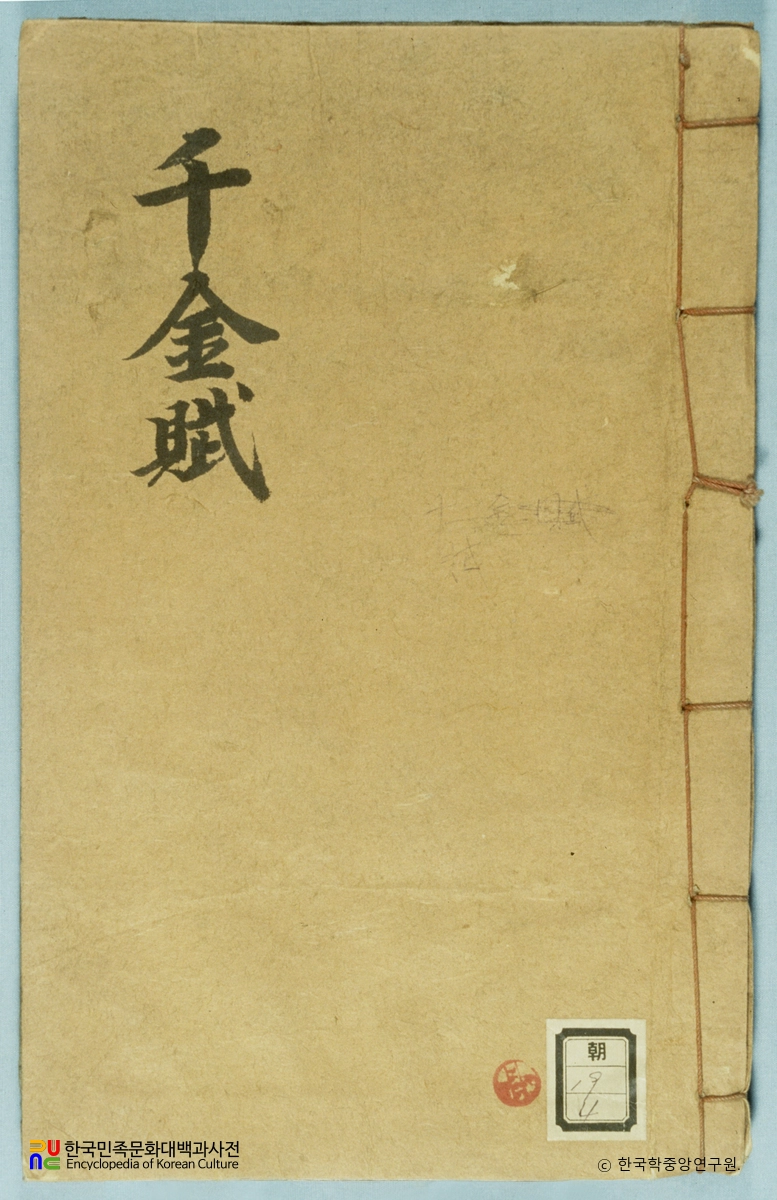 千金賦
金賦
朝
19
한국민족문화대백과사전
Encyclopedia of Korean Culture
ⓒ 한국학중앙연구원.